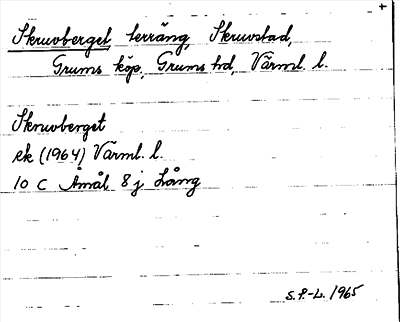 +
Skruvberget, terräng, Skruvstad,
Grums köp, Grums hd, Värml. l.
Skruvberget
ek (1964) Värml. l.
10 C Åmål 8 j Lång
S.P.-L. 1965